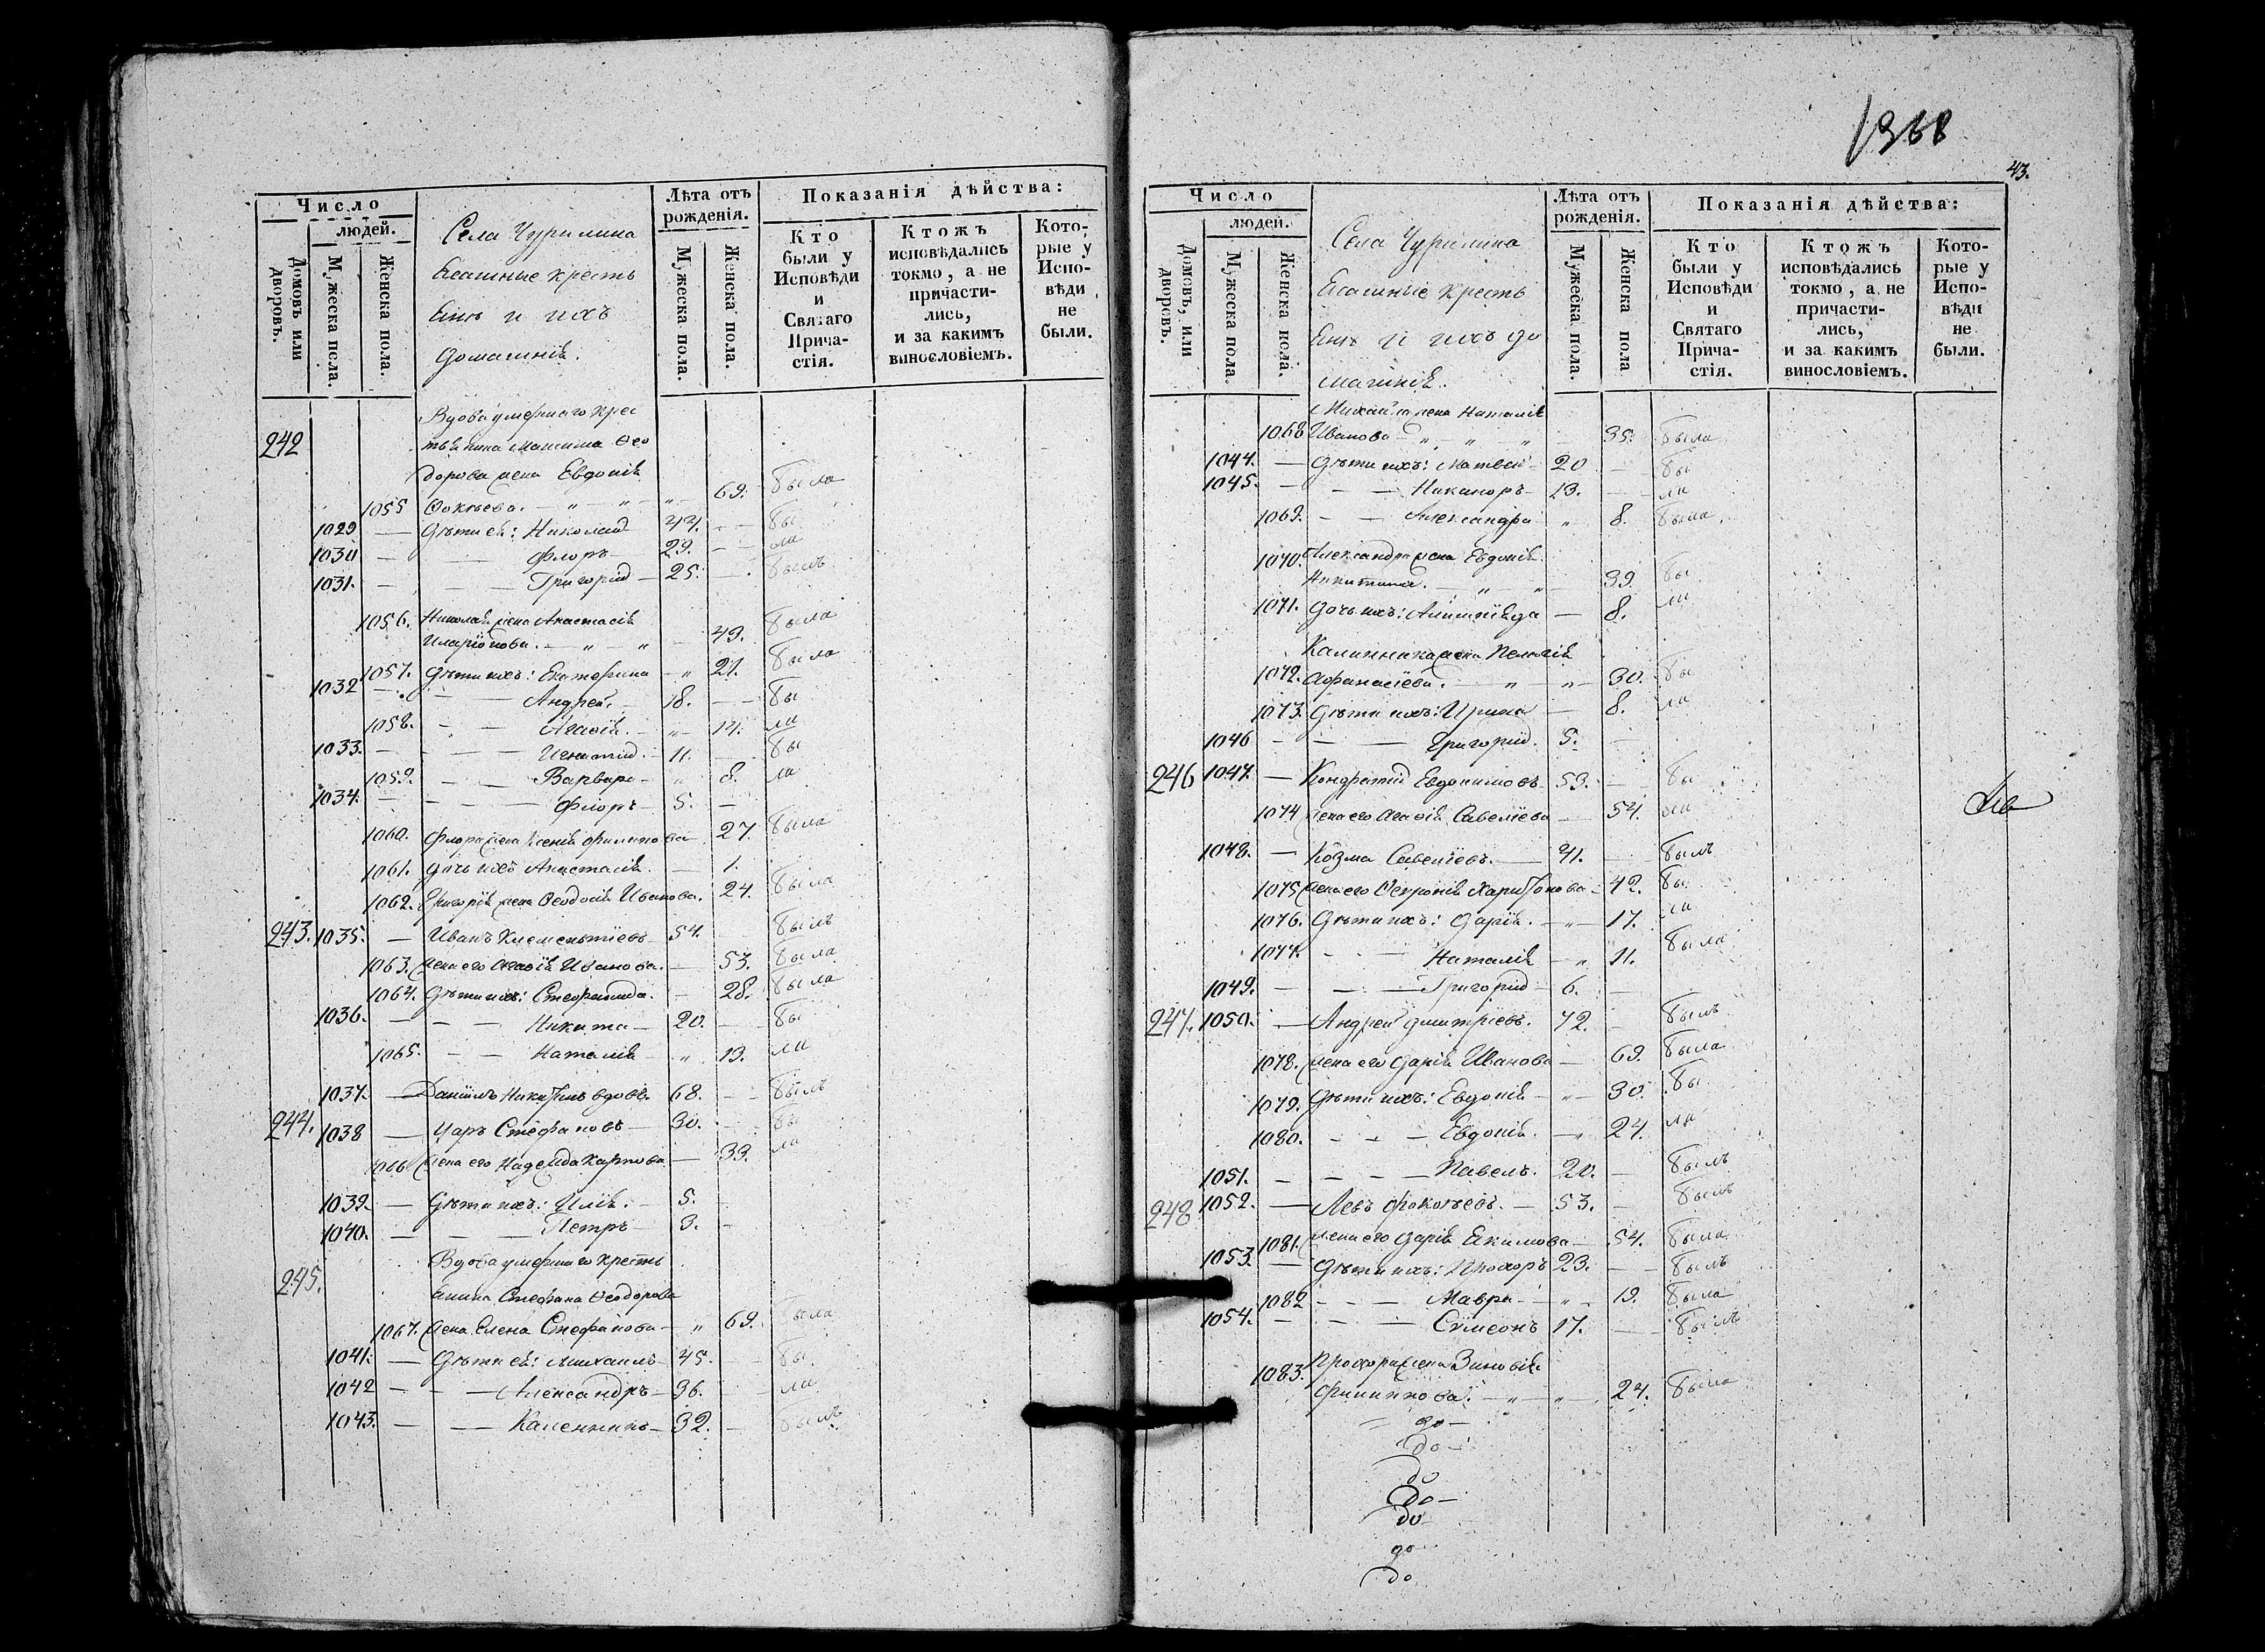 Число
людей.
Домовъ или дворовъ.
Мужеска пола.
Женска пола.
Села Чурилина
Ясашные кресть
яне и ихъ
домашніе.
Лѣта отъ рожденія.
Мужеска пола.
Женска пола.
Показанія дѣйства:
Кто были у Исповѣди и Святаго Прича-стія.
Ктожъ исповѣдались токмо, а не причасти-лись, и за какимъ винословіемъ.
Кото-рые у Испо-вѣди не были.
242 Вдова умершаго крес
тьянина Максима Ѳео
дорова жена Евдокія
1055 Фокѣева. 69. была
1029 Дѣти ея: Николай 44. бы
1030 Флоръ 29. ли
1031. Григорій 25. былъ
1056. Николая жена Анастасія
Иларіонова. 49. была
1057. Дѣти ихъ: Екатерина 21. была
1032 Андрей 18. бы
1058. Агафія 14. ли
1033. Игнатій 11. бы
1059. Варвара 8. ли
1034. Флоръ 5.
1060. Флора жена Ксенія Филипова 27 была
1061. Дочь ихъ Анастасія 1.
1062. Григорія жена Ѳеодосія Иванова. 24. была
243. 1035. Иванъ Клементіевъ 54. былъ
1063. Жена его Агафія Иванова. 53. была
1064. Дѣти ихъ: Стефанида. 28. была
1036. Никита 20. бы
1065. Наталія 19. ли
1037. Даніилъ Никитинъ вдовъ. 68. былъ
244. 1038 Уаръ Стефановъ 30. бы
1066 Жена его Надежда Карпова 33. ли
1039. Дѣти ихъ: Илія. 5.
1040. Петръ 3.
245. Вдова умершаго кресть
янина Стефана Ѳеодорова
1067. Жена Елена Стефанова 69. была
1041. Дѣти ея: Михаилъ 45. бы
1042 Александръ 36. ли
1043. Калинникъ 32. былъ
1368
43.
Число
людей.
Домовъ, или дворовъ.
Мужеска пола.
Женска пола.
Села Чурилина
Ясашные кресть
яне и ихъ до
машніе.
Лѣта отъ рожденія.
Мужеска пола.
Женска пола
Показанія дѣйства:
Кто были у Исповѣди и Святаго Прича-стія.
Ктожъ исповѣдались токмо, а не причасти-лись, и за какимъ винословіемъ.
Кото-рые у Испо-вѣди не были.
Михаила жена Наталія
1068 Иванова 35. была
1044. Дѣти ихъ: Матвей 20 бы
1045. Никаноръ 13. ли
1069. Александра 8. была
1070. Александра жена Евдокія
Никитина. 39. бы
1071. Дочь ихъ: 8. ли
Калинника жена Пелагія
1072. Афанасіева. 30. бы
1073. Дѣти ихъ: Ирина 8. ли
1046 Григорій. 5.
246 1047. Кондратій Евдокимовъ 53. бы
1074 Жена его Агафія Савеліева 54. ли
1048. Козма Савеліевъ. 41. былъ
1075 Жена его Харитонова 42. бы
1076. Дѣти ихъ: Дарія. 17. ли
1077. Наталія 11. была
1049. Григорій 6.
247. 1050. Андрей Димитріевъ. 72. былъ
1078. Жена его Дарія Иванова 69. была
1079. Дѣти ихъ: Евдокія 30. бы
1080. Евдокія. 24. ли
1051. Павелъ. 20. былъ
248 1052. Левъ Фокѣевъ. 53. былъ
1081. Жена его Дарія Екимова 54. была
1053. Дѣти ихъ: Прохоръ 23. былъ
1082 Мавра 19. была
1054. Сѵмеонъ 17. былъ
1083. Прохора жена Зиновія
Филипова. 24. была
до
до
до
до
до
до
до